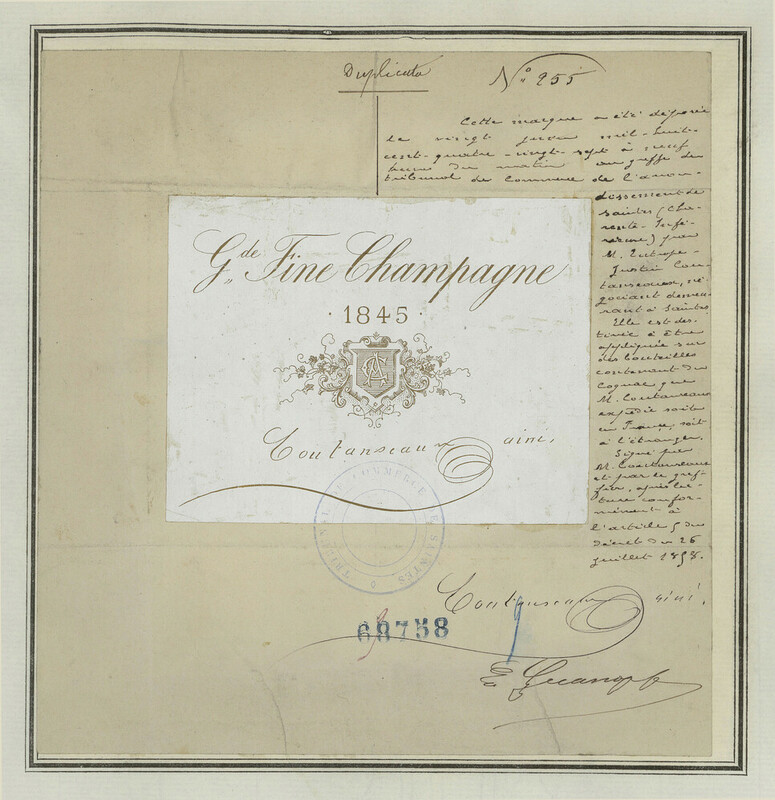 Duplicata
N° 255
Cette marque a été déposée
le vingt juin mil-huit-
cent-quatre-vingt-sept à neuf
heures du matin au greffe du
tribunal de commerce de l'arron-
dissement de
Saintes (Cha-
rente-Infé-
rieure) par
M. Eutrope-
Justin Cou-
tanseaux, né-
gociant demeu-
rant à Saintes.
Elle est des-
tinée à être
appliquée sur
des bouteilles
contenant du
Cognac que
M. Coutanseaux
expédie soit
en France, soit
à l'étranger.
Signé par
M. Coutanseaux
et par le gref-
fier, après lec-
ture confor-
mément à
l'article 5 du
décret du 26
juillet 1858.
Gde Fine Champagne
· 1845 ·
CA
Coutanseaux aîné,
TRIBUNAL DE COMMERCE DE SAINTES
Coutanseaux aîné,
68758